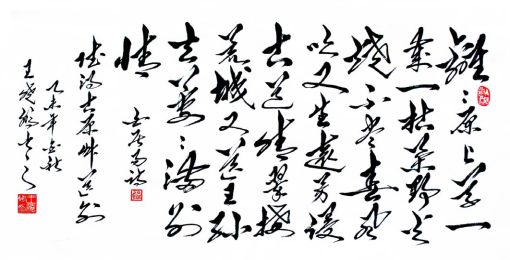 離〻原上草一
歲一枯榮野火
燒不盡春風
吹又生遠芳侵
古道晴翠接
荒城又送王孫
去萋〻滿別
情
白居易詩
賦得古原草送別
乙未年秋
王